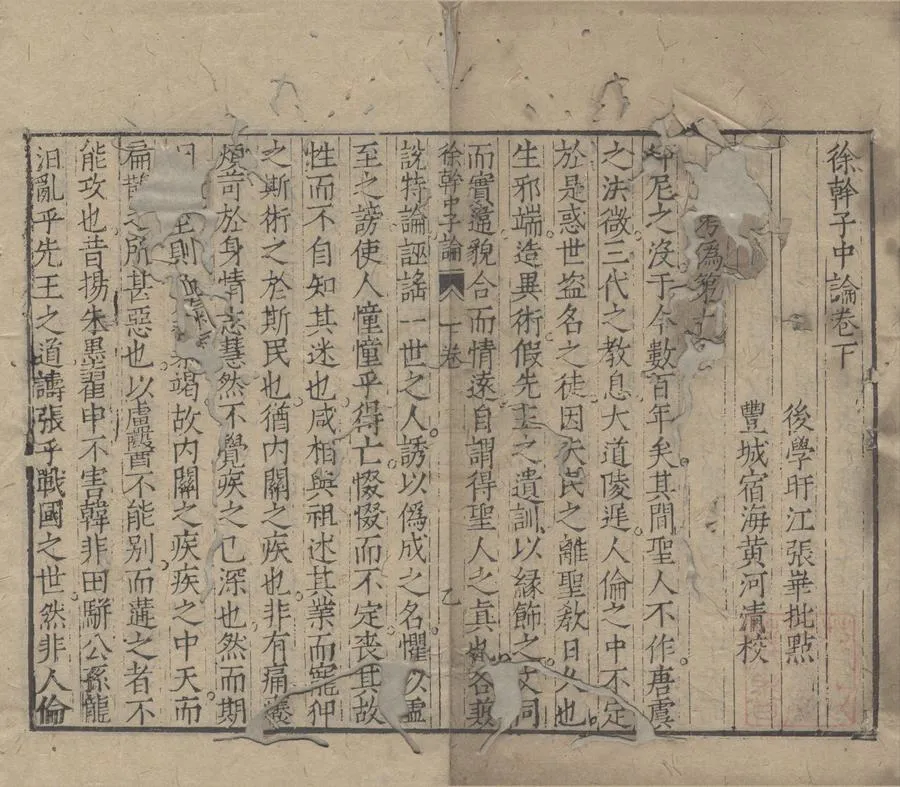 徐幹子中論卷下
後學盱江張畢批點
豐城宿海黃河清校
考僞第十
尼之没于今數百年矣其間聖人不作唐虞
之法微三代之教息大道陵遲人倫之中不定
於是惑世盗名之徒因夫民之離聖教日久也
生邪端造異術假先王之遺訓以緣飾之文同
而實違貌合而情遠自謂得聖人之真也各兼
徐幹中子論 下卷 乙
説特論誣謡一世之人誘以僞成之名懼以虚
至之謗使人憧憧乎得亡惙惙而不定喪其故
性而不自知其迷也咸相與祖述其業而寵狎
之斯術之於斯民也猶内關之疾也非有痛癢
煩苛於身情志慧然不覺疾之已深也然而期
則血氣竭故内關之疾疾之中夭而
扁鵲之所甚惡也以盧醫不能别而遘之者不
能攻也昔揚朱墨翟申不害韓非田駢公孫龍
汨亂乎先王之道譸張乎戰國之世然非人倫